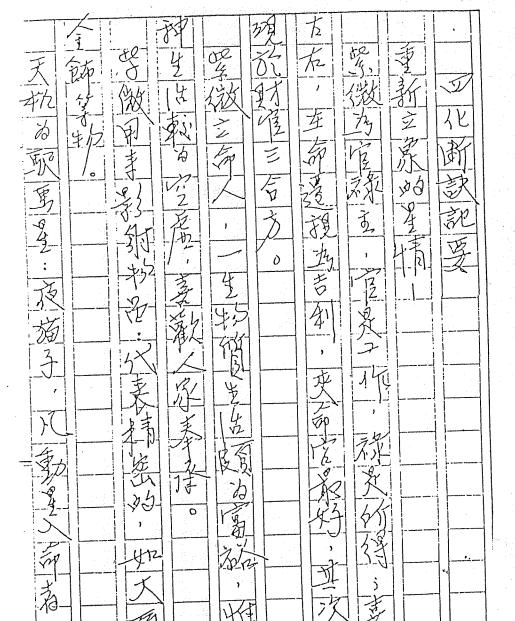 四化斷訣記要
重新立象的星情—
紫微為官祿主，官是工作，祿是所得；喜
左右，在命遷視為吉利，夾命宮最好，其次
現於財官三合方。
紫微立命人，一生物質生活頗為富裕，惟
種生活較為空虛，喜歡人家奉承。
紫微用來影射物品：代表精密的，如大
金飾等物。
天機為驛馬星：夜貓子，凡動星入命者